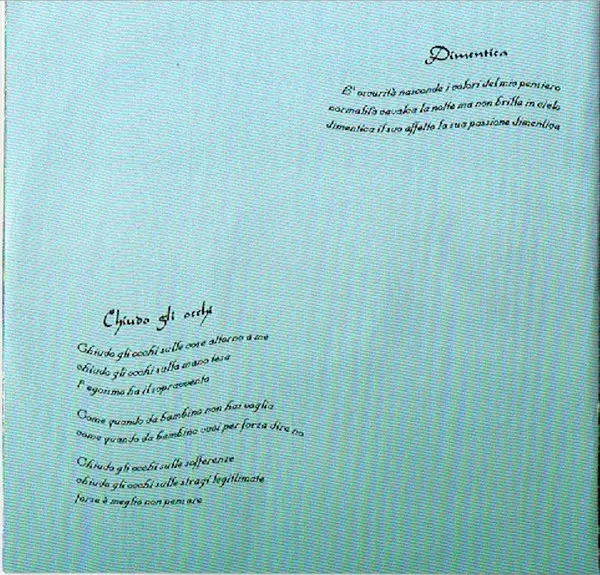 Dimentica
E' oscurità nasconde i colori del mio pensiero
normalità cavalca la notte ma non brilla in cielo
dimentica il suo affetto la sua passione dimentica
Chiudo gli occhi
Chiudo gli occhi sulle cose attorno a me
chiudo gli occhi sulla mano tesa
l'egoismo ha il sopravvento
Come quando da bambino non hai voglia
come quando da bambino vuoi per forza dire no
Chiudo gli occhi sulle sofferenze
chiudo gli occhi sulle stragi legittimate
forse è meglio non pensare